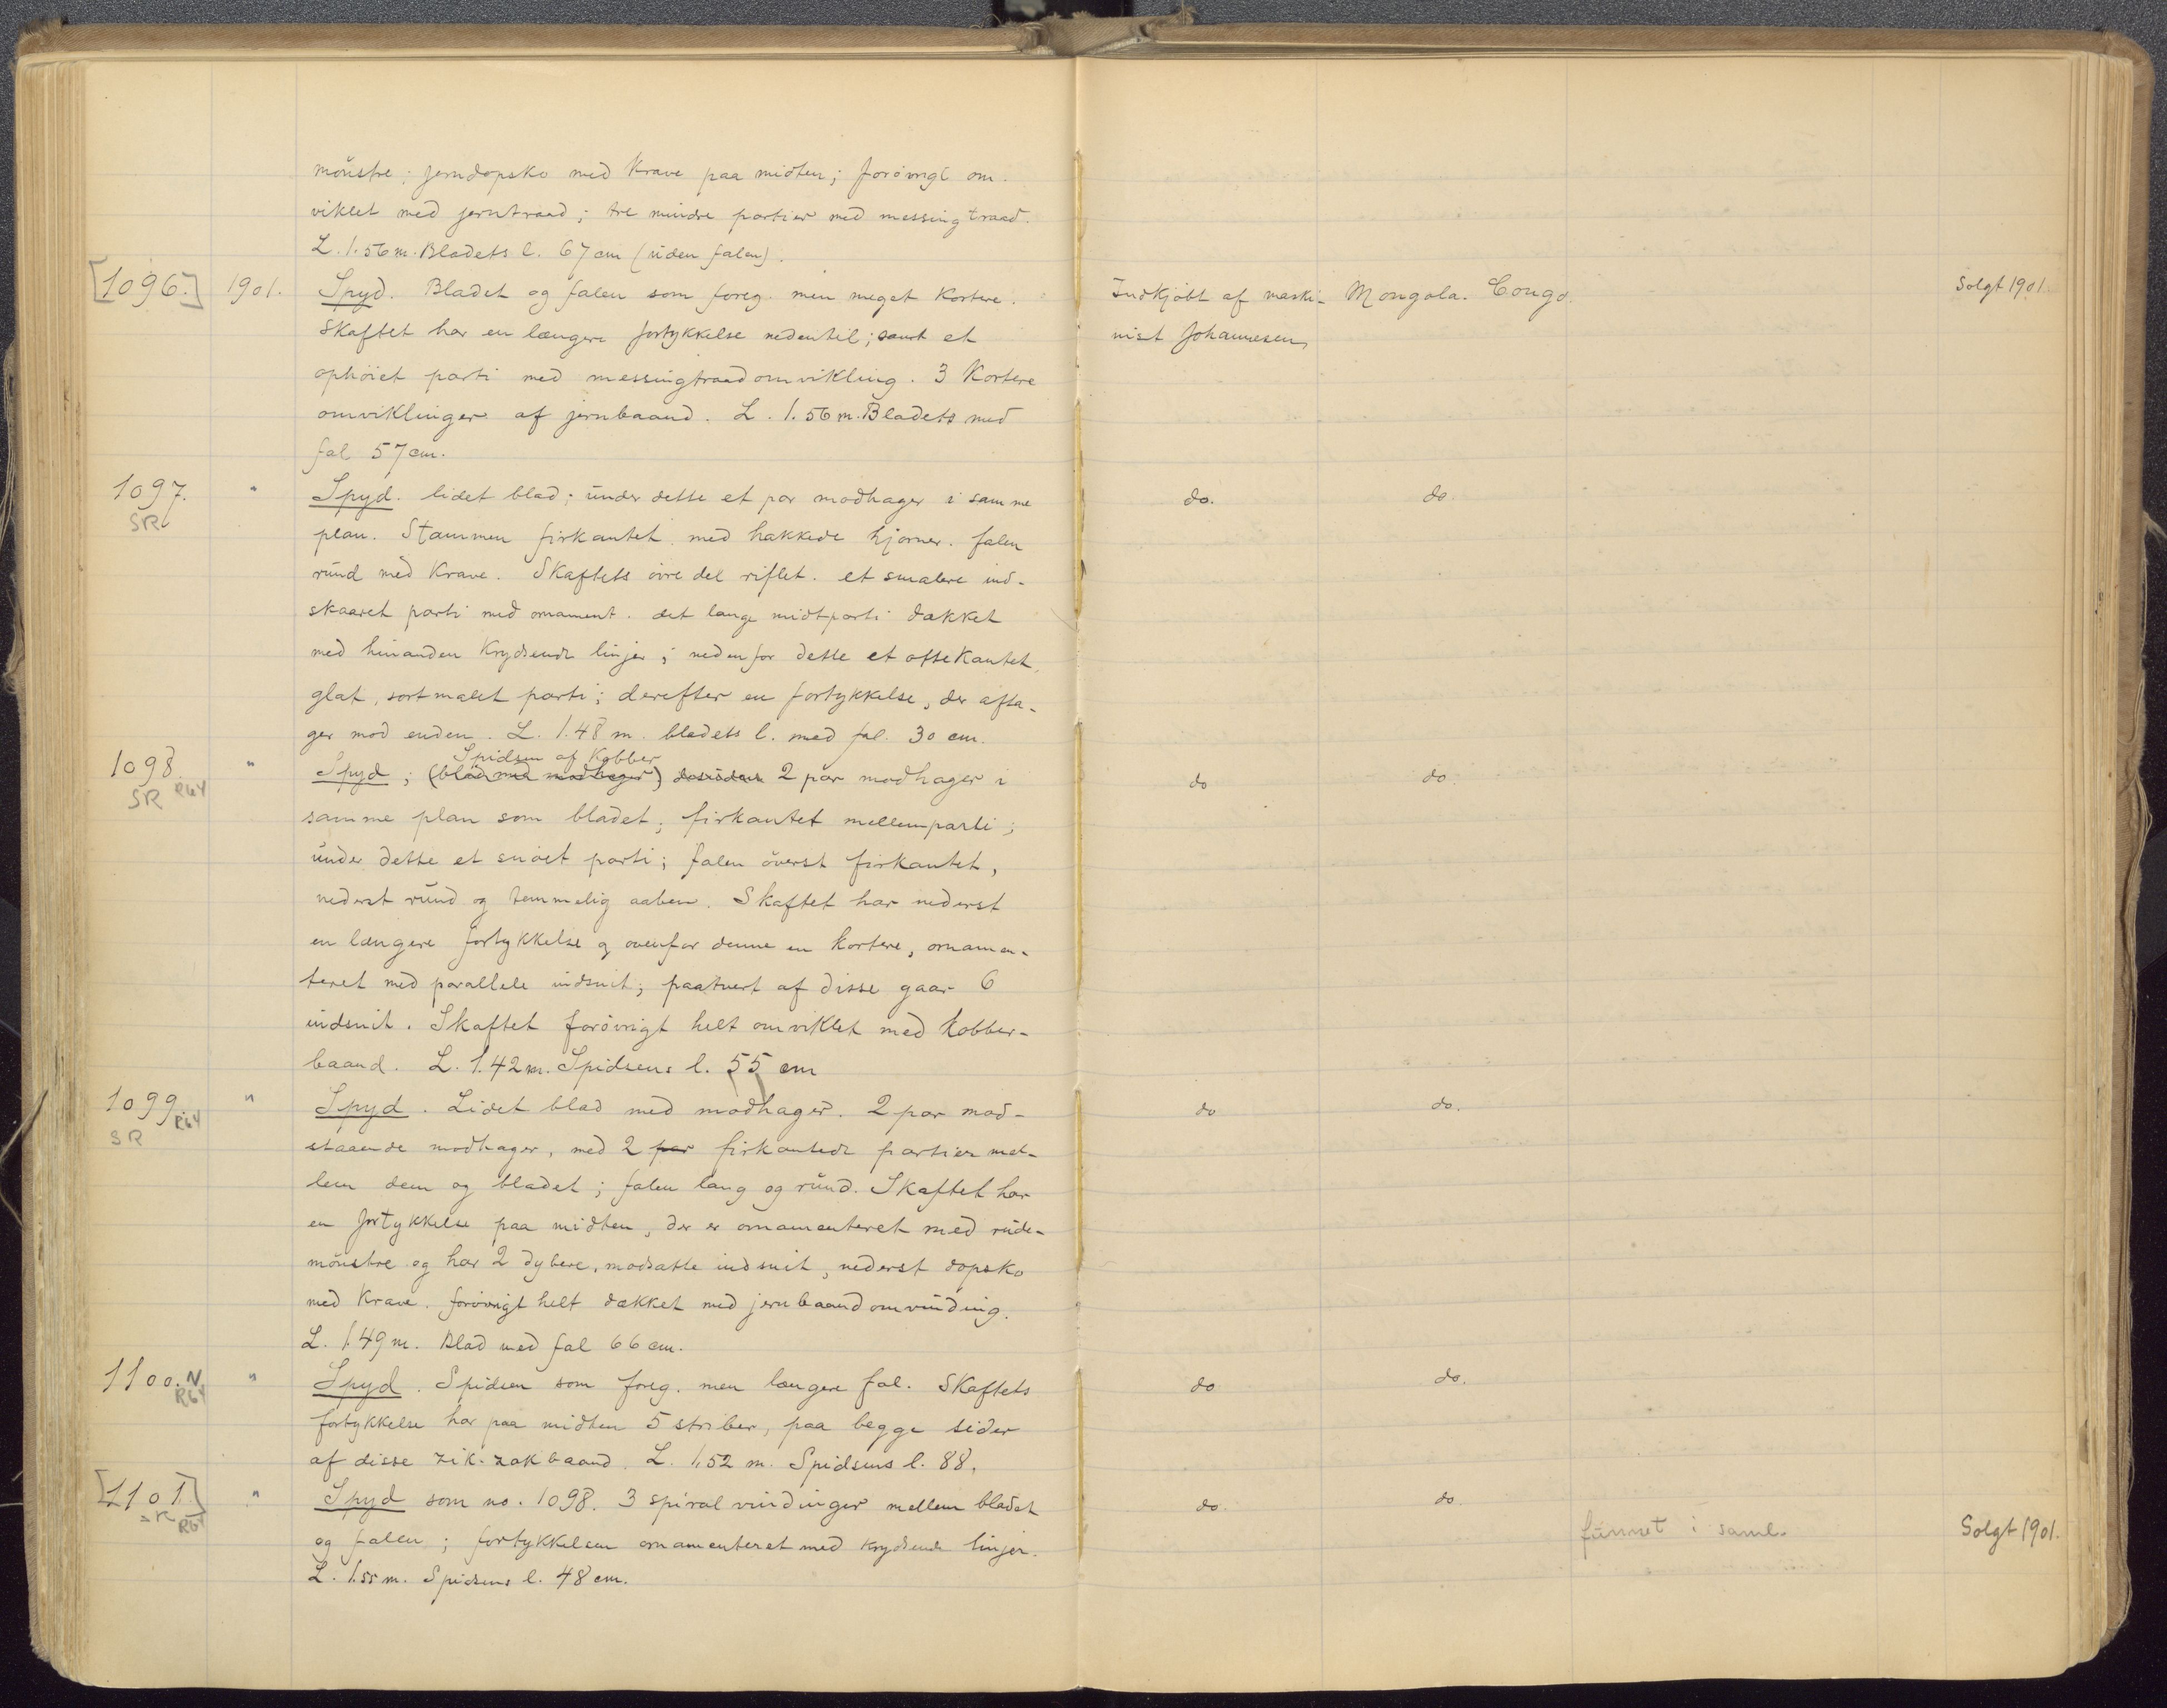 mönstre; jerndopsko med Krave paa midten; forövrigt om-
viklet med jerntraad; tre mindre partier med messingtraad.
L. 1.56 m. Bladets l. 67 cm (uden falen).
[1096.] 1901. Spyd. Bladet og falen som foreg. men meget Kortere. Indkjöbt af maski- Mongala. Congo. Solgt 1901.
Skaftet har en længere fortykkelse nedentil; samt et nist Johannesen
ophöiet parti med messingtraadomvikling. 3 Kortere
omviklinger af jernbaand. L. 1.56 m. Bladets med
fal 57 cm.
1097. " Spyd. lidet blad; under dette et par modhager i samme do. do.
SR plan. Stammen firkantet med hakkede hjörner. falen
rund med Krave. Skaftets övre del riflet. et smalere ind-
skaaret parti med ornament. det lange midtparti dækket
med hinanden Krydsende linjer; nedenfor dette et ottekantet,
glat, sortmalet parti; derefter en fortykkelse, der afta-
ger mod enden. L. 1.48 m. bladets l. med fal 30 cm.
Spidsen af Kobber
1098. " Spyd; (blad med modhager) desuden 2 par modhager i do do.
SR R64 samme plan som bladet; firkantet mellemparti;
under dette et snoet parti; falen överst firkantet,
nederst rund og temmelig aaben. Skaftet har nederst
en længere fortykkelse og ovenfor denne en kortere, ornamen-
teret med parallele indsnit; paatvert af disse gaar 6
indsnit. Skaftet forövrigt helt omviklet med kobber-
baand. L. 1.42 m. Spidsens l. 55 cm
1099 R64 " Spyd. Lidet blad med modhager. 2 par mod- do do.
SR staaende modhager, med 2 par firkantede partier mel-
lem dem og bladet; falen lang og rund. Skaftet har
en fortykkelse paa midten, der er ornamenteret med rude-
mönstre og har 2 dybere, modsatte indsnit, nederst dopsko
med Krave. forövrigt helt dækket med jernbaandomvinding.
L. 1.49 m. Blad med fal 66 cm.
1100. N " Spyd. Spidsen som foreg. men længere fal. Skaftets do do.
R64 fortykkelse har paa midten 5 striber, paa begge sider
af disse zik-zakbaand. L. 1.52 m. Spidsens l. 88.
[1101] " Spyd som no. 1098. 3 spiralvindinger mellem bladet do. do.
SR R64 og falen; fortykkelsen ornamenteret med Krydsende linjer. funnet i saml. Solgt 1901.
L. 1.55 m. Spidsens l. 48 cm.